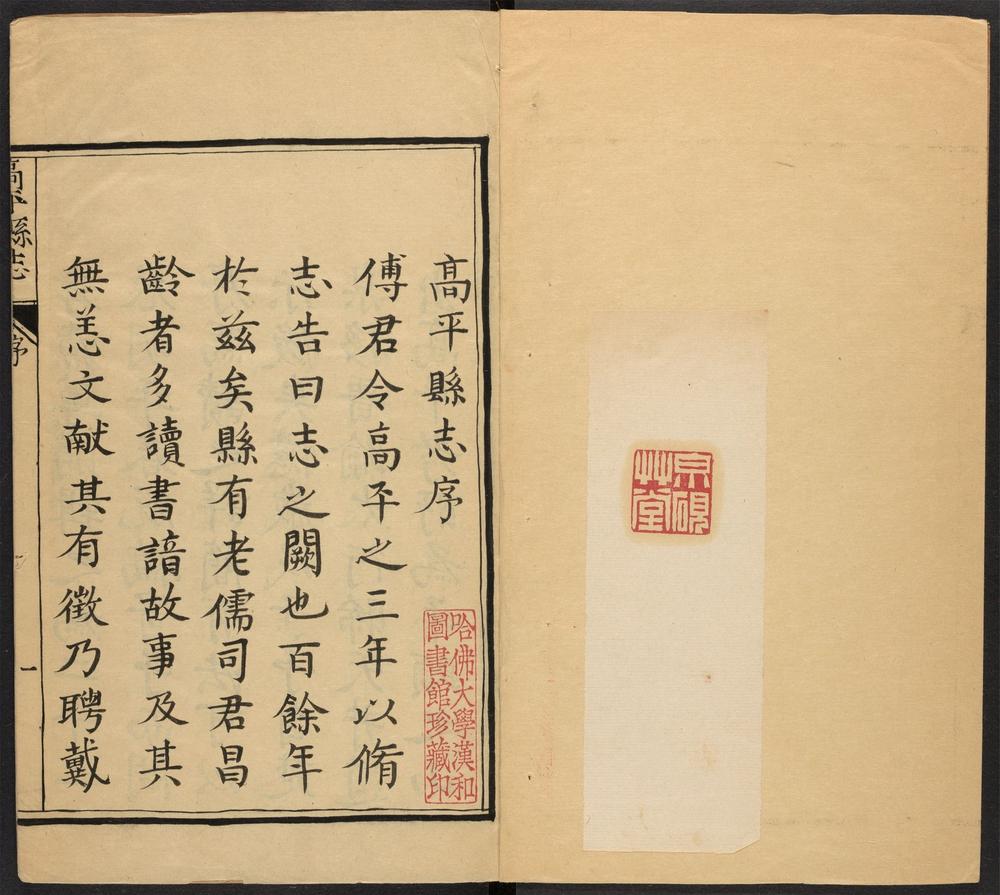 硯
艸堂
高平縣志序
哈佛大學漢和
圖書館珍藏印
傅君令高平之三年以脩
志告曰志之闕也百餘年
於兹矣縣有老儒司君昌
齡者多讀書諳故事及其
無恙文献其有徵乃聘戴
高平縣志
序
一